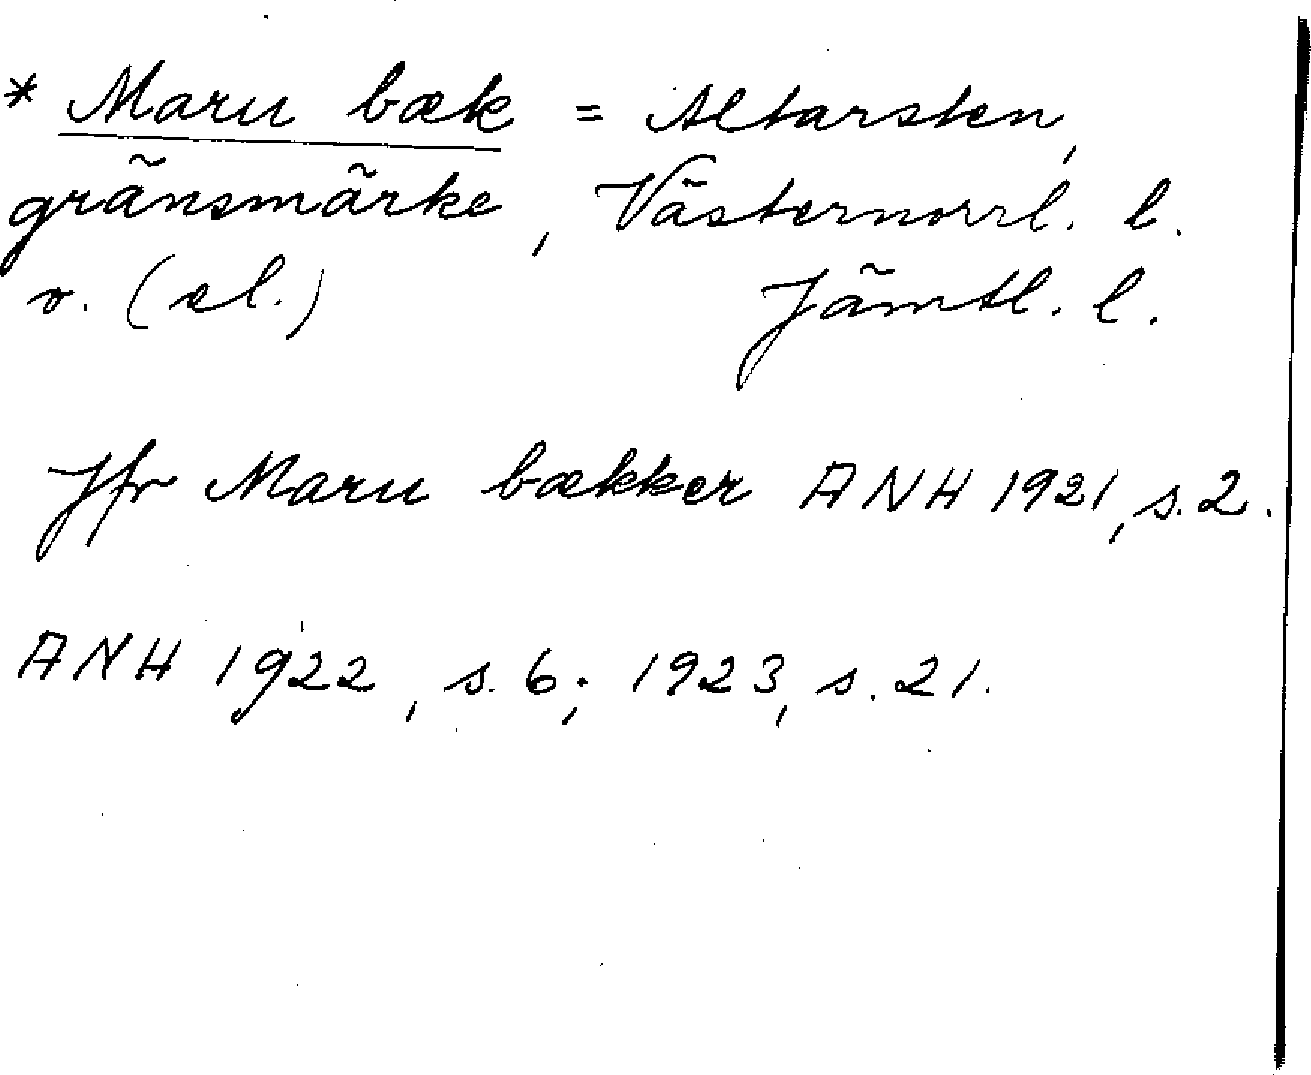 * Maru bæk = Altarsten,
gränsmärke, Västernorrl. l.
o. (el.) Jämtl. l.
Jfr Maru bækker ANH 1921, s. 2.
ANH 1922, s. 6; 1923, s. 21.